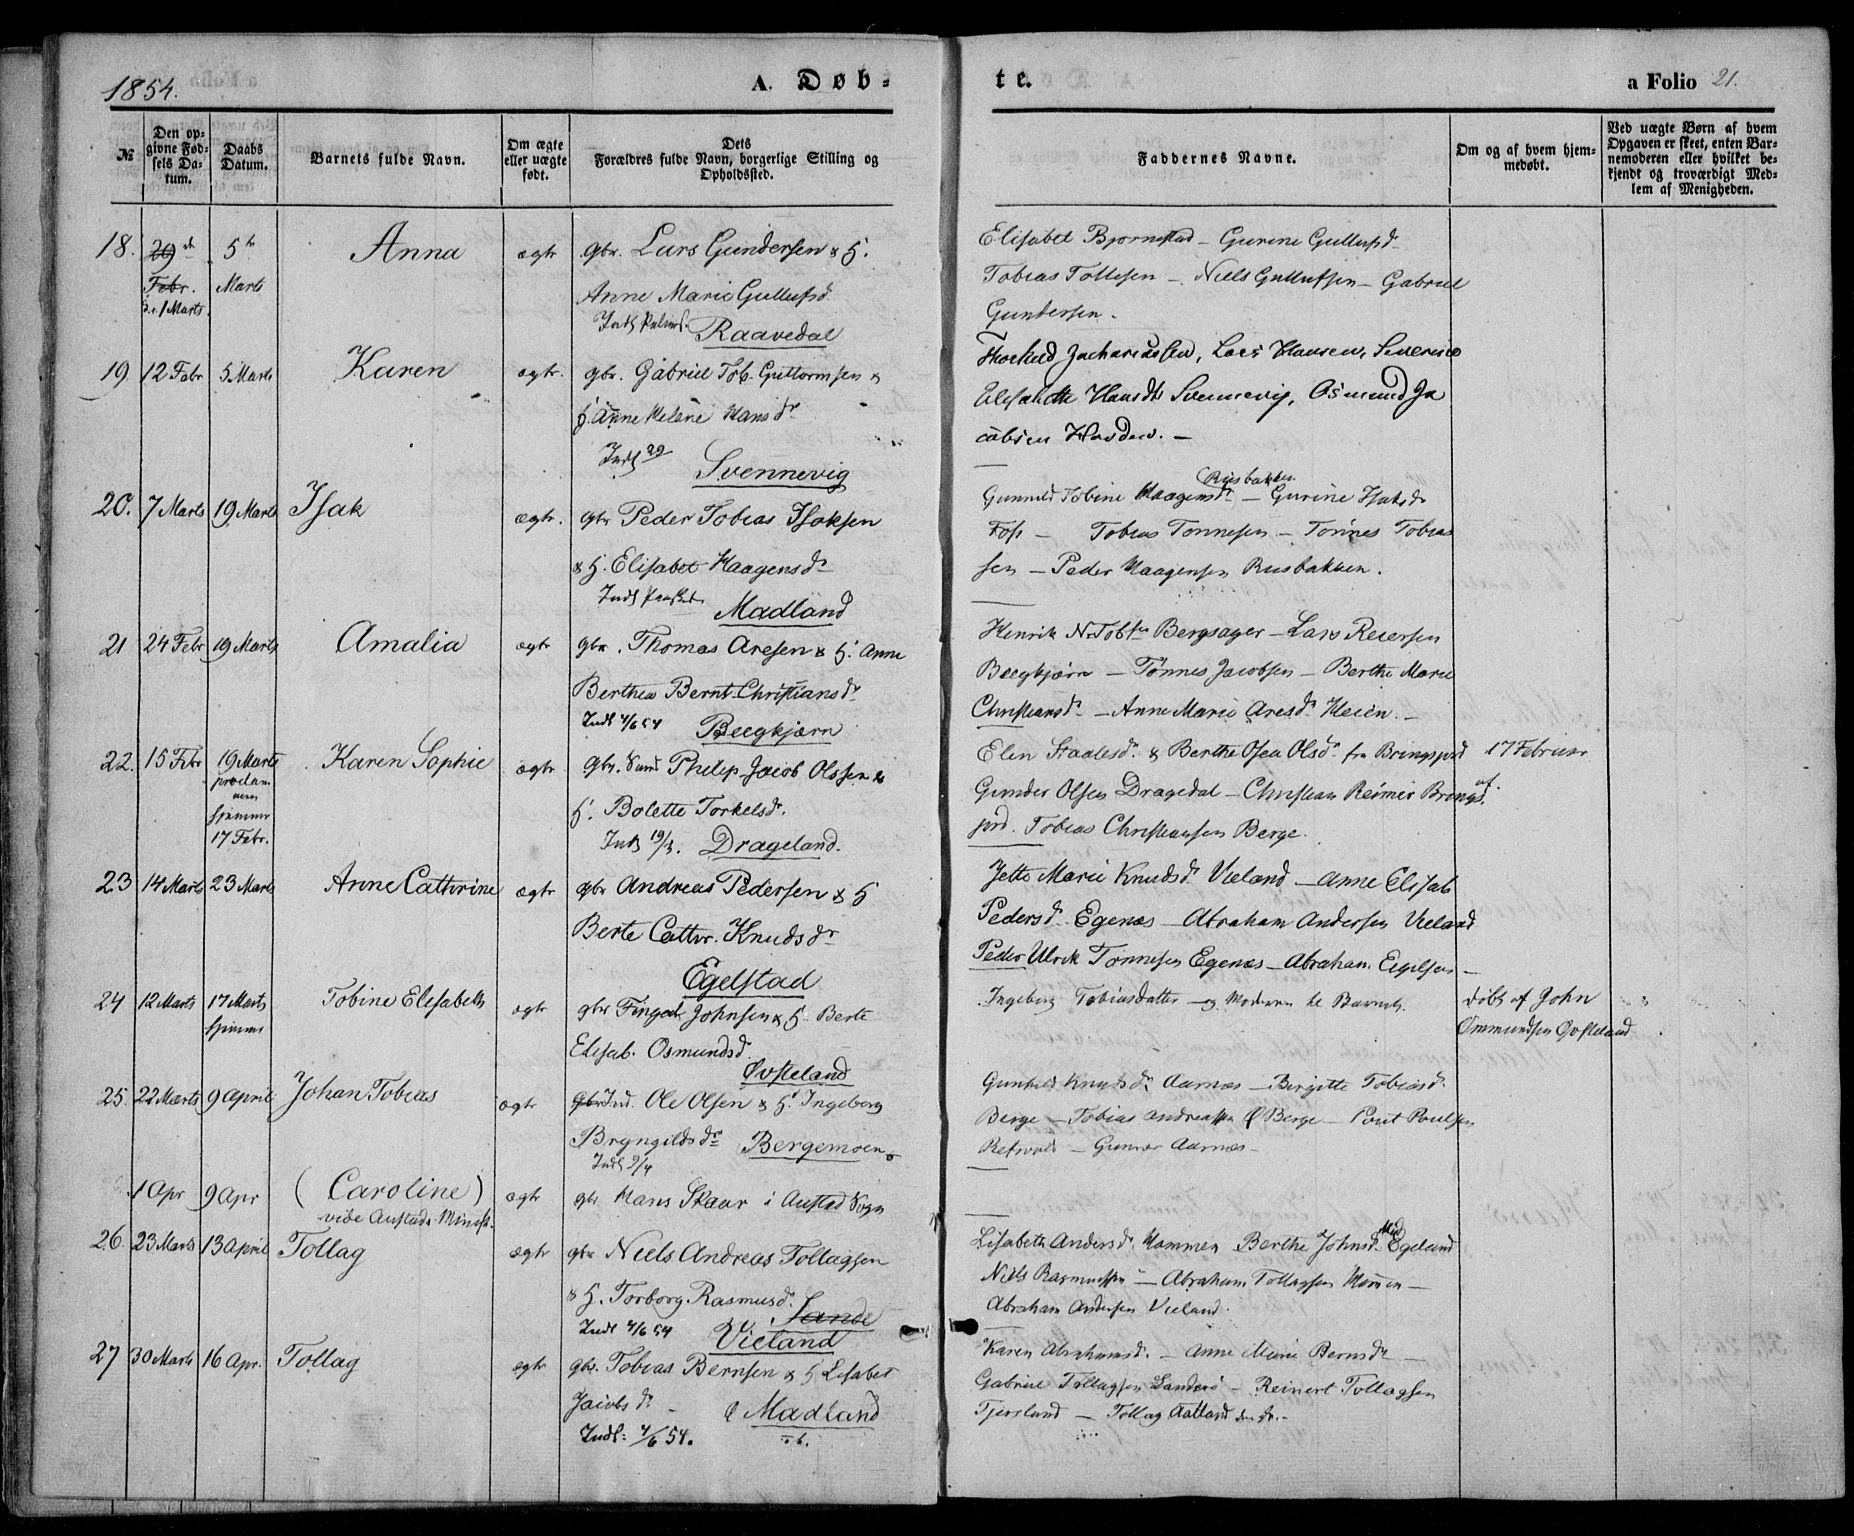 1854.
A. Døb-
te.
a Folio 21.
№
Den op-
givne Fød-
sels Da-
tum.
Daabs
Datum.
Barnets fulde Navn.
Om ægte
eller uægte
født.
Dets
Forældres fulde Navn, borgerlige Stilling og
Opholdssted.
Faddernes Navne.
Om og af hvem hjem-
medøbt.
Ved uægte Børn af hvem
Opgaven er skeet, enten Bar-
nemoderen eller hvilket be-
kjendt og troværdigt Med-
lem af Menigheden.
18. 5te Anna ægte gbr. Lars Gundersen & H.
Febr. Marts Anne Marie Gullufsd.
1 Marts
Raavedal
Elisabet Bjørnestad — Gurine Gullufsdr
Tobias Tollesen — Niels Gullufsen — Gabriel
Gundersen.
19. 12 Febr 5 Marts Karen ægte. gbr. Gabriel Tob. Guttormsen &
H. Anne Helene Hansdr
Indl 29
Svennevig
Zachariassen, Lars Hansen, Severine
Hansdtr Svennevig, Osmund Ja
cobsen
20. 7 Marts 19 Marts Isak ægte. gbr Peder Tobias Isaksen
& H. Elisabet Haagensdr
Madland
Rusbakken
Gunnild Tobine Haagensdr — Gurine Isaksdr
Foss — Tobias Tønnesen — Tønnes Tobias
sen — Peder Haagensen Rusbakken.
21 24 Febr 19 Marts Amalia ægte gbr. Thomas Aresen & H. Anne
Berthea Bernt Christiansdr
Indl 4/6 54 Beegkjærn
Henrik N. Tobsen Bergsager — Lars Reiersen
Beegkjærn — Tønnes Jacobsen — Berthe Marie
Christiansdr — Anne Marie Aresdr Heien. —
22. 15 Febr 19 Marts Karen Sophie ægte gbr. Philip Jacob Olssen &
hjemme
17 Febr.
H. Bolette Torkelsdr.
Indl 19/3. Drageland.
Elen Staalesdr & Berthe Osea Olsdr fra Bringsjord
Gunder Olsen Dragedal — Christian Reimer Brings
jord. Tobias Christiansen Berge.
17 Februar
af
23 14 Marts 23 Marts Anne Cathrine ægte gbr Andreas Pedersen & H
Berte Cathr. Knudsdr
Egelstad
Jette Marie Knudsdr Vieland — Anne Elisab
Pedersdr Egenæs — Abraham Andersen Vieland
Peder Ulrik Tønnesen Egenæs — Abraham Eigelsen —
24 12 Marts 17 Marts Tobine Elisabeth ægte gbr Fingal Johnsen & H. Berte
hjemme
Elisab. Osmundsd.
Øvsteland
Ingeborg Tobiasdatter — og Moderen til Barnet.
døbt af John
Ommundsen Øvsteland
25. 22 Marts 9 April Johan Tobias ægte Ind. Ole Olsen & H. Ingeborg
Bryngildsdr Bergemoen
Indl 9/4
Gunhild Knudsdr Aarnæs — Birgitte Tobiasdr
Berge — Tobias Andreassen Ø Berge — Poul Poulsen
— Gunner Aarnæs —
1 Apr 9 Apr (Caroline) ægte gbr Hans Skaar i Austad Sogn
vide Austads Minist.
26. 23 Marts 13 April Tollag ægte gbr Niels Andreas Tollagsen
& H. Torborg Rasmusdr.
Sande
Indl 4/6 54 Vieland
Lisabeth Andersdr. Hommen Berthe Johnsdr Egeland
Niels Rasmussen — Abraham Tollagsen Hommen —
Abraham Andersen Vieland.
27 30 Marts 16 Apr. Tollag ægte gbr. Tobias Bernsen & H Lisabet
Jacobsdr — Ø Madland
Indl: 4/6 54.
Karen Abrahamsdr. — Anne Marie Bernsdr —
Gabriel Tollagsen Sanderø — Reinert Tollagsen
Tjersland — Tollag Aatland